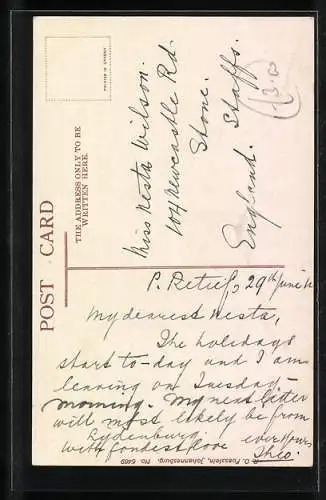 POST CARD
THE ADDRESS ONLY TO BE
WRITTEN HERE
Miss Nesta Wilson.
104 Newcastle Rd.
Stone.
Staffs.
England.
P. Retief, 29th June
My dearest Nesta,
The holidays
start to-day and I am
leaving on Tuesday
morning. My next letter
will most likely be from
Lydenburg.
With fondest love ever yours
Theo.
R. O. Fuesslein, Johannesburg. No. 6469